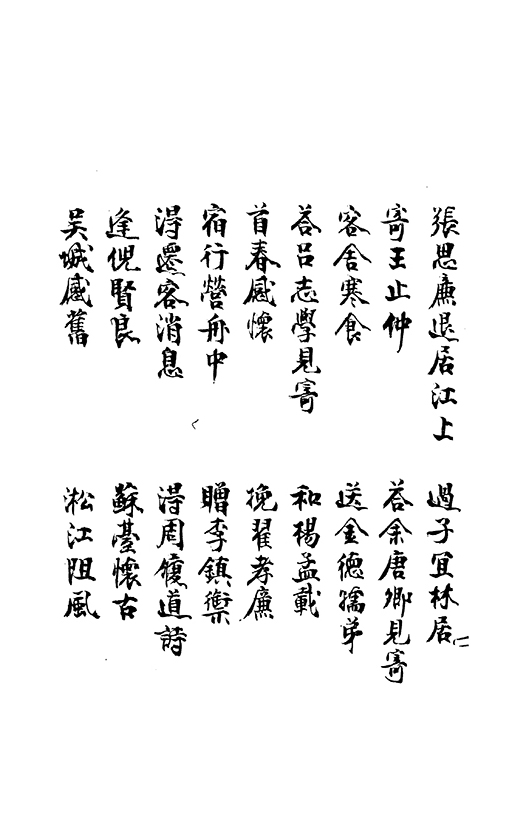 張思廉退居江上
過子宜林居二
寄王止仲
荅余唐卿見寄
客舍寒食
送金德孺弟
荅呂志學見寄
和楊孟載
首春感懷
挽翟孝廉
宿行營舟中
贈李鎮衡
淂遷客消息
淂周履道詩
逢倪賢良
蘇臺懷古
吴城感舊
淞江阻風